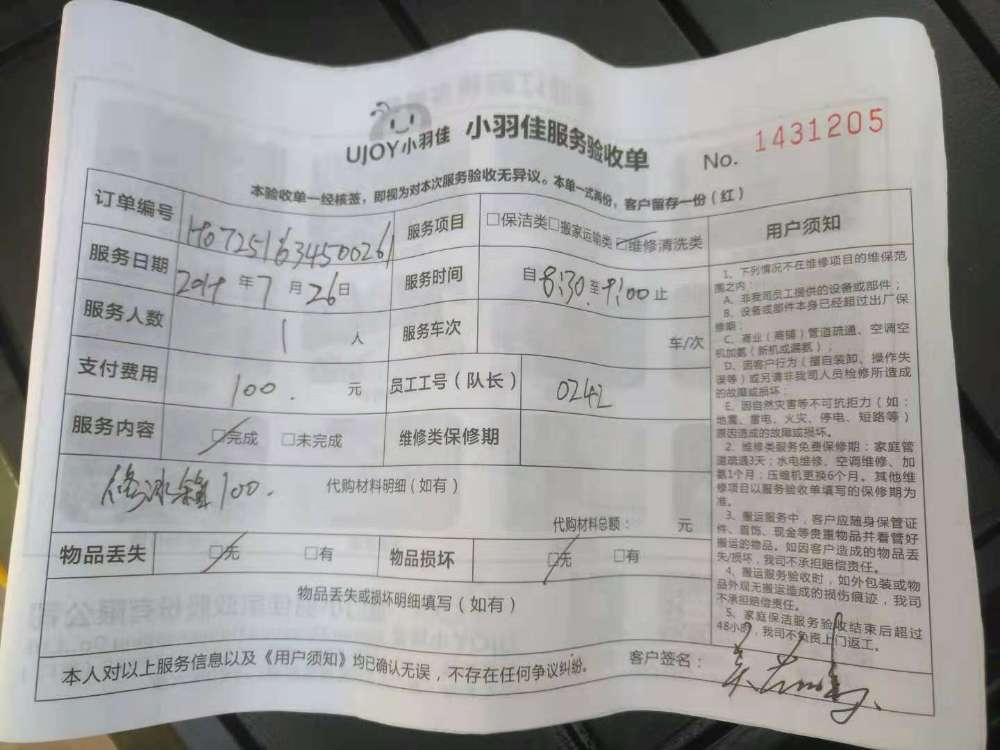 UJOY小羽佳 小羽佳服务验收单 No. 1431205
本验收单一经核签，即视为对本次服务验收无异议。本单一式两份，客户留存一份（红）
订单编号 H07251634500261 服务项目 □保洁类□搬家运输类☑维修清洗类
服务日期 2019年7月26日 服务时间 自8:30至9:00止
服务人数 1人 服务车次 车/次
支付费用 100.元 员工工号（队长） 0242
服务内容 ☑完成 □未完成 维修类保修期
修冰箱100. 代购材料明细（如有）
代购材料总额： 元
物品丢失 ☑无 □有 物品损坏 ☑无 □有
物品丢失或损坏明细填写（如有）
本人对以上服务信息以及《用户须知》均已确认无误，不存在任何争议纠纷。 客户签名：
用户须知
1、下列情况不在维修项目的维保范
围之内：
A、非我司员工提供的设备或部件；
B、设备或部件本身已经超过出厂保
修期；
C、商业（商铺）管道疏通、空调空
机加氨（新机或漏氨）；
D、因客户行为（擅自装卸、操作失
误等）或另请非我司人员检修所造成
的故障或损坏；
E、因自然灾害等不可抗拒力（如：
地震、雷电、火灾、停电、短路等）
原因造成的故障或损坏。
2、维修类服务免费保修期：家庭管
道疏通3天；水电维修、空调维修、加
氨1个月；压缩机更换6个月。其他维
修项目以服务验收单填写的保修期为
准。
3、搬运服务中，客户应随身保管证
件、首饰、现金等贵重物品并看管好
搬运的物品。如因客户造成的物品丢
失/损坏，我司不承担赔偿责任。
4、搬运服务验收时，如外包装或物
品外观无搬运造成的损伤痕迹，我司
不承担赔偿责任。
5、家庭保洁服务验收结束后超过
48小时，我司不负责上门返工。